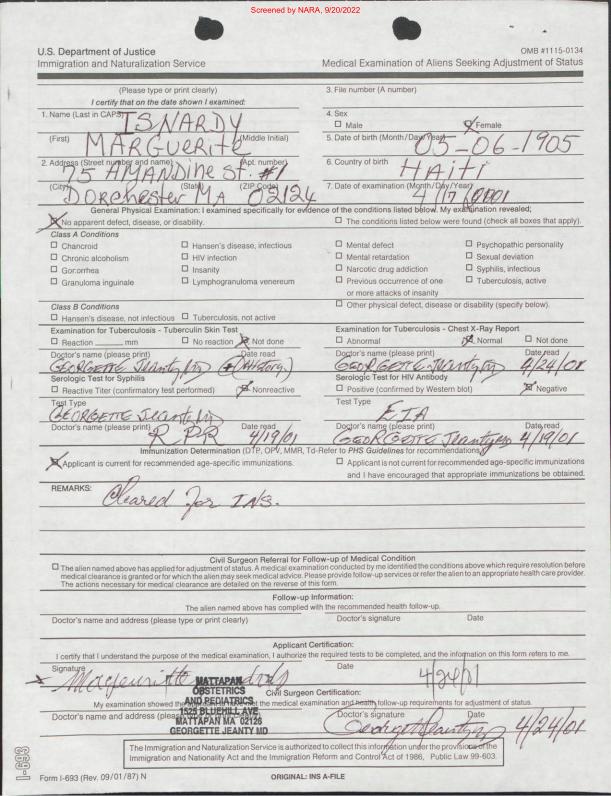 Screened by NARA, 9/20/2022
U.S. Department of Justice
Immigration and Naturalization Service
OMB #1115-0134
Medical Examination of Aliens Seeking Adjustment of Status
(Please type or print clearly)
I certify that on the date shown I examined:
3. File number (A number)
1. Name (Last in CAPS) ISNARDY
(First) MARGUERITE (Middle Initial)
4. Sex
☐ Male ☒ Female
5. Date of birth (Month/Day/Year) 05-06-1905
2. Address (Street number and name) (Apt. number)
75 AMANDINE ST. #1
6. Country of birth HAITI
(City) (State) (ZIP Code)
DORCHESTER MA 02124
7. Date of examination (Month/Day/Year)
4/17/2001
General Physical Examination: I examined specifically for evidence of the conditions listed below. My examination revealed;
☒ No apparent defect, disease, or disability.
☐ The conditions listed below were found (check all boxes that apply).
Class A Conditions
☐ Chancroid ☐ Hansen's disease, infectious ☐ Mental defect ☐ Psychopathic personality
☐ Chronic alcoholism ☐ HIV infection ☐ Mental retardation ☐ Sexual deviation
☐ Gonorrhea ☐ Insanity ☐ Narcotic drug addiction ☐ Syphilis, infectious
☐ Granuloma inguinale ☐ Lymphogranuloma venereum ☐ Previous occurrence of one or more attacks of insanity ☐ Tuberculosis, active
Class B Conditions
☐ Hansen's disease, not infectious ☐ Tuberculosis, not active
☐ Other physical defect, disease or disability (specify below).
Examination for Tuberculosis - Tuberculin Skin Test
☐ Reaction ____ mm ☐ No reaction ☒ Not done
Doctor's name (please print) Date read
GEORGETTE Jeanty MD + (History.)
Examination for Tuberculosis - Chest X-Ray Report
☐ Abnormal ☒ Normal ☐ Not done
Doctor's name (please print) Date read
GEORGETTE Jeanty MD 4/24/01
Serologic Test for Syphilis
☐ Reactive Titer (confirmatory test performed) ☒ Nonreactive
Test Type
GEORGETTE Jeanty MD
Doctor's name (please print) Date read
RPR 4/19/01
Serologic Test for HIV Antibody
☐ Positive (confirmed by Western blot) ☒ Negative
Test Type
EIA
Doctor's name (please print) Date read
GEORGETTE Jeanty MD 4/19/01
Immunization Determination (DTP, OPV, MMR, Td-Refer to PHS Guidelines for recommendations)
☒ Applicant is current for recommended age-specific immunizations.
☐ Applicant is not current for recommended age-specific immunizations
and I have encouraged that appropriate immunizations be obtained.
REMARKS: Cleared for INS.
Civil Surgeon Referral for Follow-up of Medical Condition
☐ The alien named above has applied for adjustment of status. A medical examination conducted by me identified the conditions above which require resolution before
medical clearance is granted or for which the alien may seek medical advice. Please provide follow-up services or refer the alien to an appropriate health care provider.
The actions necessary for medical clearance are detailed on the reverse of this form.
Follow-up Information:
The alien named above has complied with the recommended health follow-up.
Doctor's name and address (please type or print clearly) Doctor's signature Date
Applicant Certification:
I certify that I understand the purpose of the medical examination, I authorize the required tests to be completed, and the information on this form refers to me.
Signature Date
Marguerite 4/24/01
MATTAPAN
OBSTETRICS
AND PEDIATRICS
1525 BLUEHILL AVE
MATTAPAN MA 02126
GEORGETTE JEANTY MD
Civil Surgeon Certification:
My examination showed the applicant to have met the medical examination and health follow-up requirements for adjustment of status.
Doctor's name and address (please Doctor's signature Date
Georgette Jeanty MD 4/24/01
The Immigration and Naturalization Service is authorized to collect this information under the provisions of the
Immigration and Nationality Act and the Immigration Reform and Control Act of 1986, Public Law 99-603.
I-693
Form I-693 (Rev. 09/01/87) N
ORIGINAL: INS A-FILE